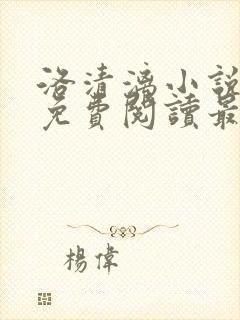 洛清漓小說
免費閱讀最
楊偉